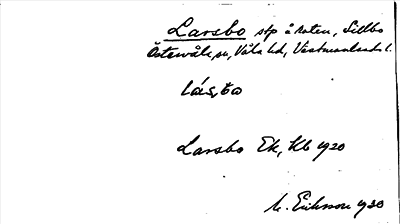 Larsbo stp å Roten, Sillbo
Östervåla sn, Våla hd, Västmanlands l.
Larsbo Ek, Kb 1920
M. Eriksson 1930